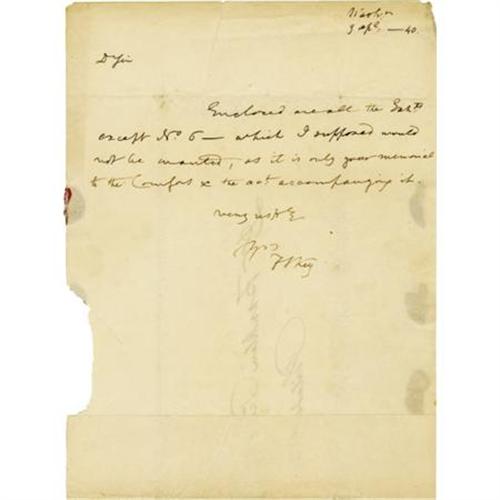 Washn
9 Apl — 40.
Dr Sir
Enclosed are all the Exhts
except No 6 — which I supposed would
not be wanted, as it is only your memorial
to the Comrs & the acct accompanying it.
Very respy
Yrs
F S Key